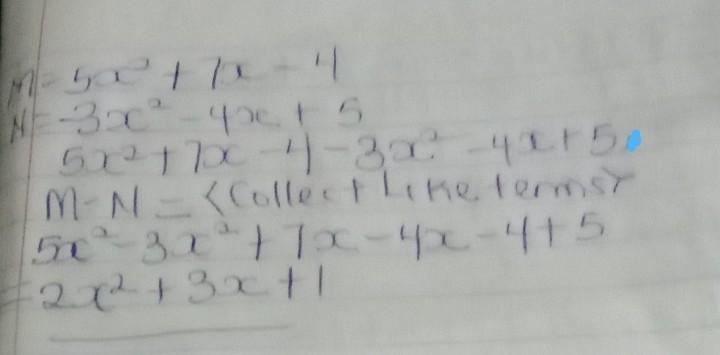 M = 5x² + 7x - 4
N = 3x² - 4x + 5
5x² + 7x - 4 - 3x² - 4x + 5
M - N = <Collect Like terms>
5x² - 3x² + 7x - 4x - 4 + 5
= 2x² + 3x + 1